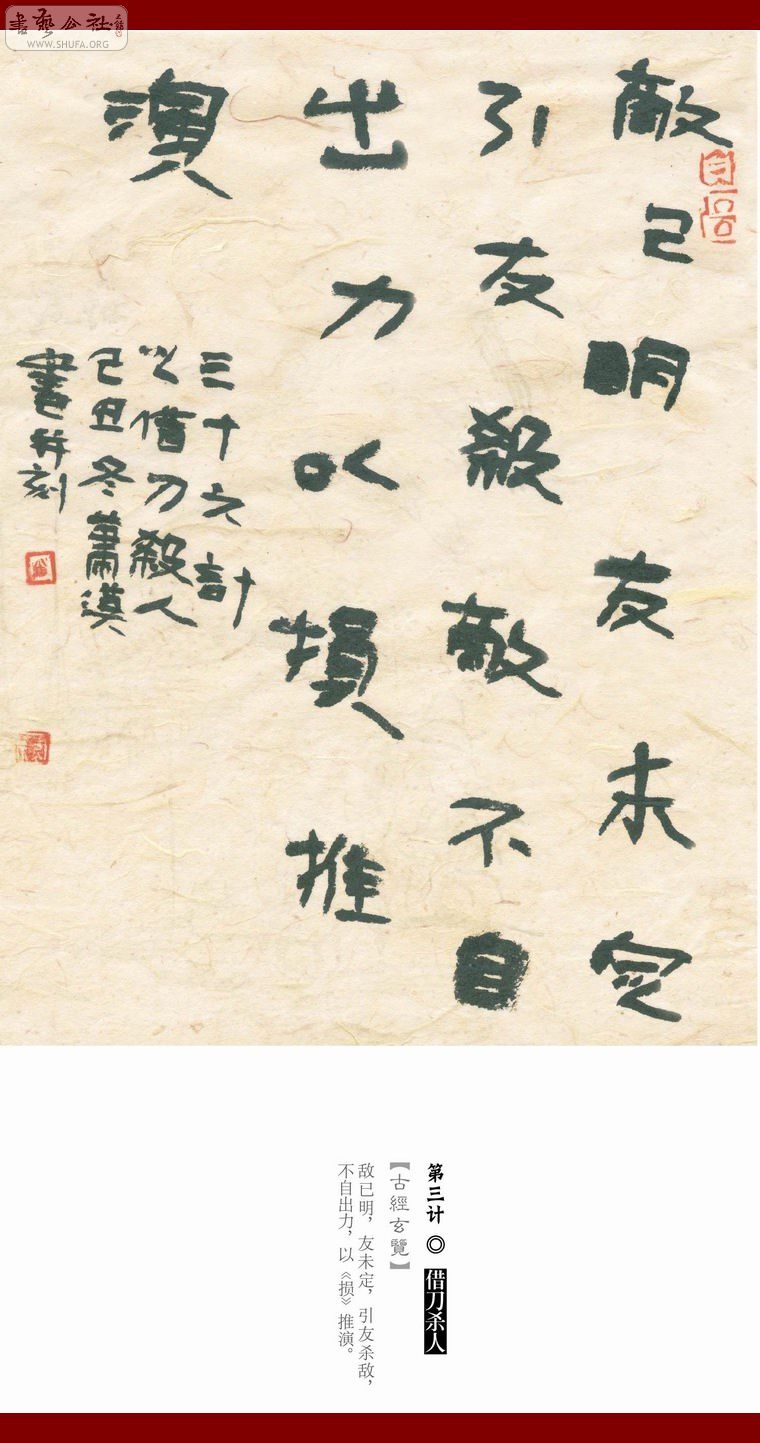 書藝公社
WWW.SHUFA.ORG
敵已明友未定
引友殺敵不自
出力以損推
演
三十六計
之借刀殺人
己丑冬蕭漠
書并刻
第三计 ◎ 借刀杀人
【古經玄覽】
敌已明，友未定，引友杀敌，
不自出力，以《损》推演。